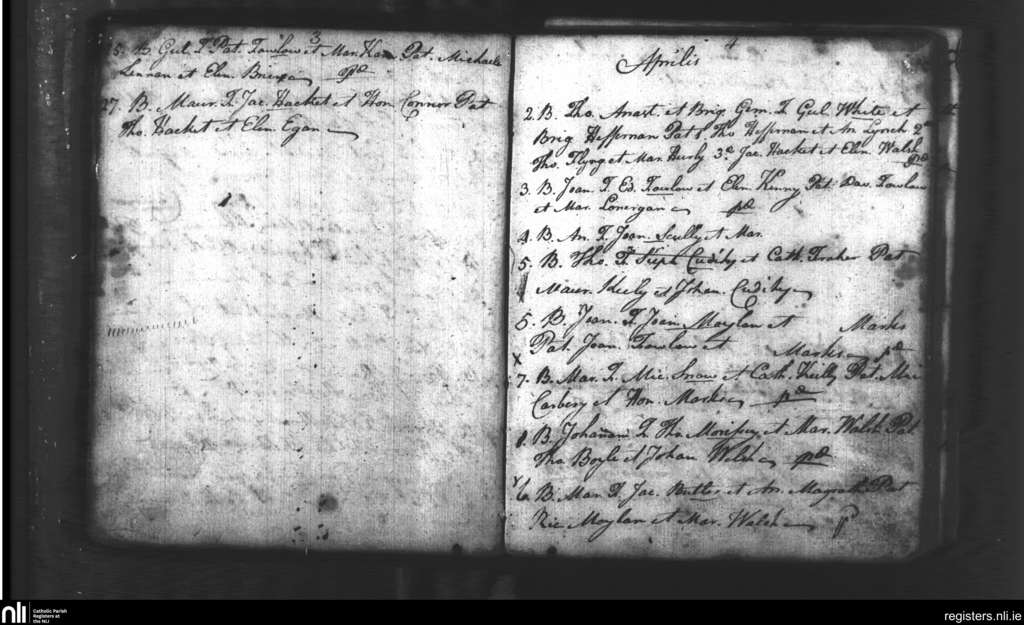 3
5. B. Gul. F. Pat. Fowlow et Mar. Pat. Michaele
Lennan et Elen. pd
27. B. Maur. F. Jac. Hacket et Hon. Connor Pat
Tho. Hacket et Elen. Egan
4
Aprilis
2. B. Tho. Anast. et Brig. Gem. F. Gul. White et
Brig Heffernan Pat 1 Tho Heffernan et An Lynch 2
Tho. Flyng et Mar. Hurly 3. Jac. Hacket et Elen. Walsh
pd
3. B. Joan. F. Ed. Fowlow et Elen. Kenny Pat. Dav. Fowlow
et Mar. Lonergan pd
4. B. An. F. Joan. Scully et Mar.
5. B. Tho. F. Step. Cudihy et Cath. Pat
Maur. Keely et Johan. Cudihy
5. B. Joan. F. Joan Moylan et Marks
Pat. Joan. Fowlow et Marks pd
x
7. B. Mar. F. Mic. Snow et Cath. Kielly Pat. Mic
Carbery et Hon. Marks pd
B. Johanam F. Tho et Mar. Walsh Pat
Tho Boyle et Johan Welsh pd
6 B. Mar. F. Jac. Butler et An. Magrath Pat
Ric Moylan et Mar. Walsh p
nli
Catholic Parish
Registers at
the NLI
registers.nli.ie